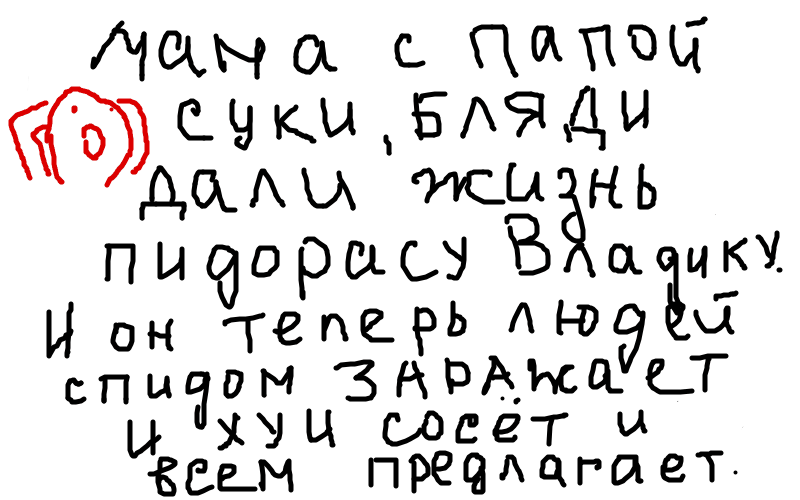 мама с папой
суки, БЛЯДИ
дали жизнь
пидорасу Владику.
И он теперь людей
спидом ЗАРАжает
и хуи сосёт и
всем предлагает.